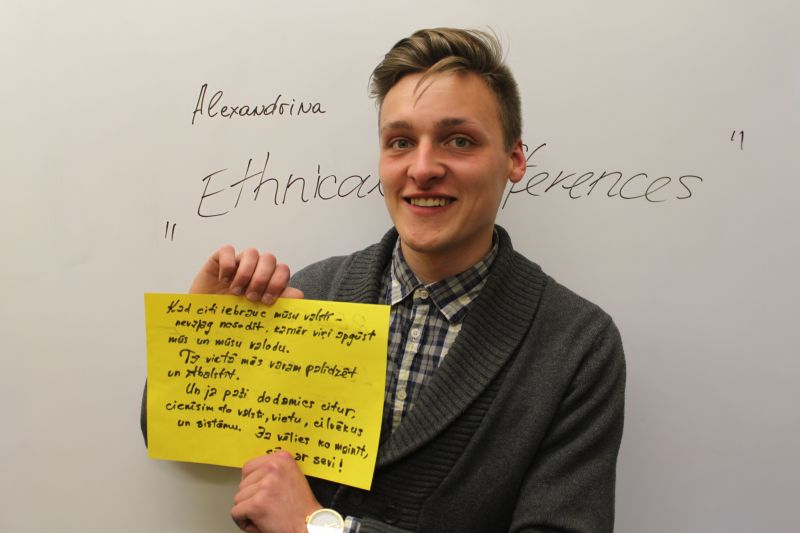 Alexandrina
" Ethnical fferences "
Kad citi iebrauc mūsu valstī –
nevajag nosodīt, kamēr viņi apgūst
mūs un mūsu valodu.
Tā vietā mēs varam palīdzēt
un atbalstīt.
Un ja paši dodamies citur,
cienīsim to valsti, vietu, cilvēkus
un sistēmu. Ja vēlies ko mainīt,
ar sevi!